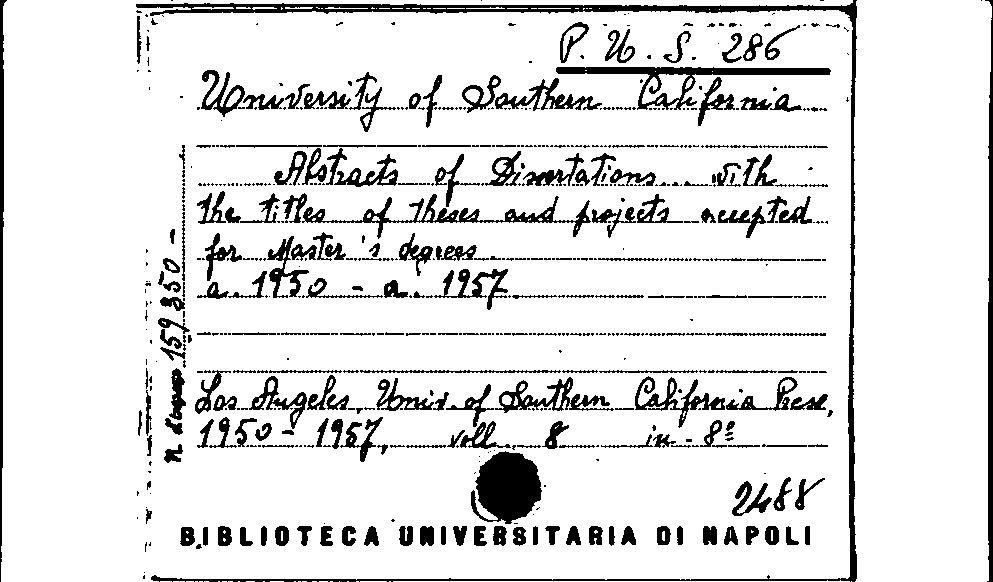 P. U. S. 286
University of Southern California
Abstracts of Dissertations... with
the titles of theses and projects accepted
for Master's degrees.
a. 1950 - a. 1957.
Los Angeles, Univ. of Southern California Press,
1950 - 1957, voll. 8 in - 8º
2488
BIBLIOTECA UNIVERSITARIA DI NAPOLI
159350 -